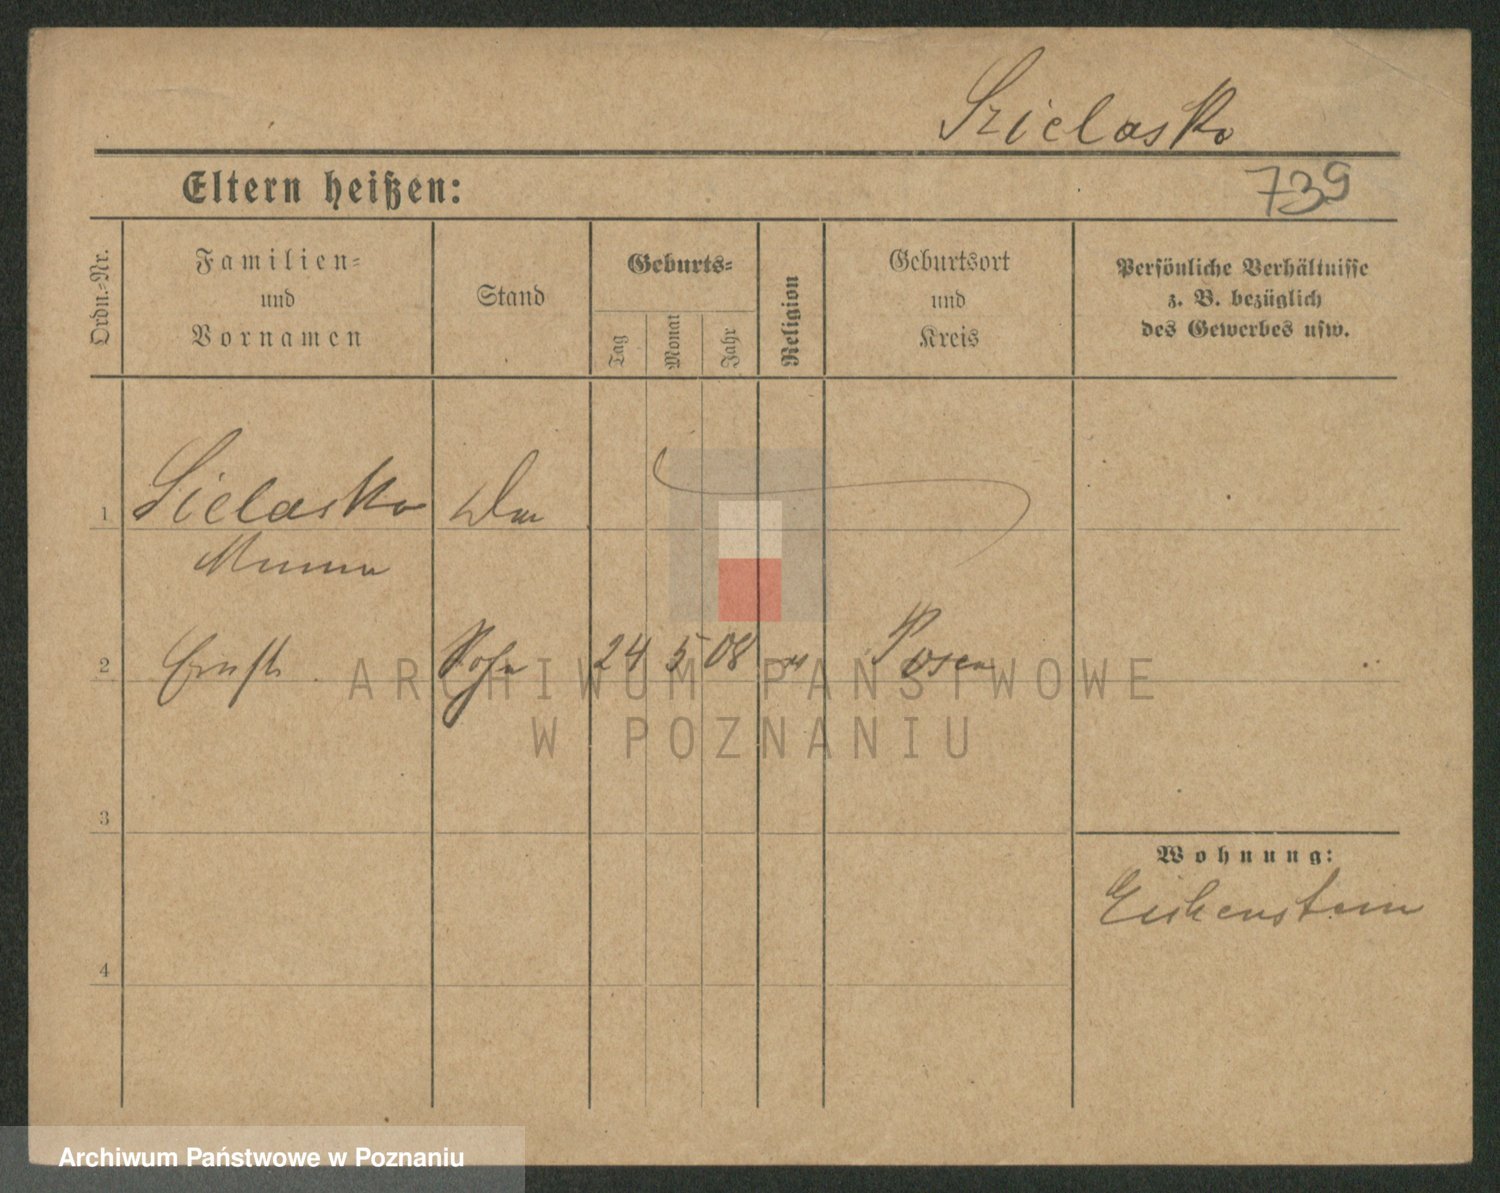 Szielasko
Eltern heißen:
739
Ordn.-Nr.
Familien-
und
Vornamen
Stand
Geburts-
Tag
Monat
Jahr
Religion
Geburtsort
und
Kreis
Persönliche Verhältnisse
z. B. bezüglich
des Gewerbes usw.
1 Sielasko
2 Ernst Sohn 24 5 08 Posen
ARCHIWUM PAŃSTWOWE
W POZNANIU
3
Wohnung:
Eichenstein
4
Archiwum Państwowe w Poznaniu